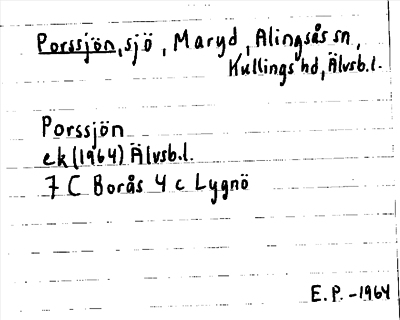 Porssjön, sjö, Maryd, Alingsås sn,
Kullings hd, Älvsb.l.
Porssjön
ek (1964) Älvsb.l.
7 C Borås 4 c Lygnö
E.P. -1964